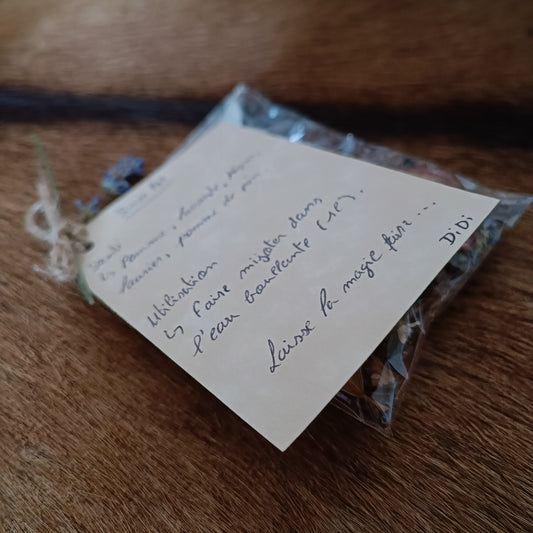 ↳ Pomme, lavande,
laurier, pomme de pin
Utilisation
↳ Faire mijoter dans
l'eau bouillante (1L).
Laisse la magie faire...
DiDi